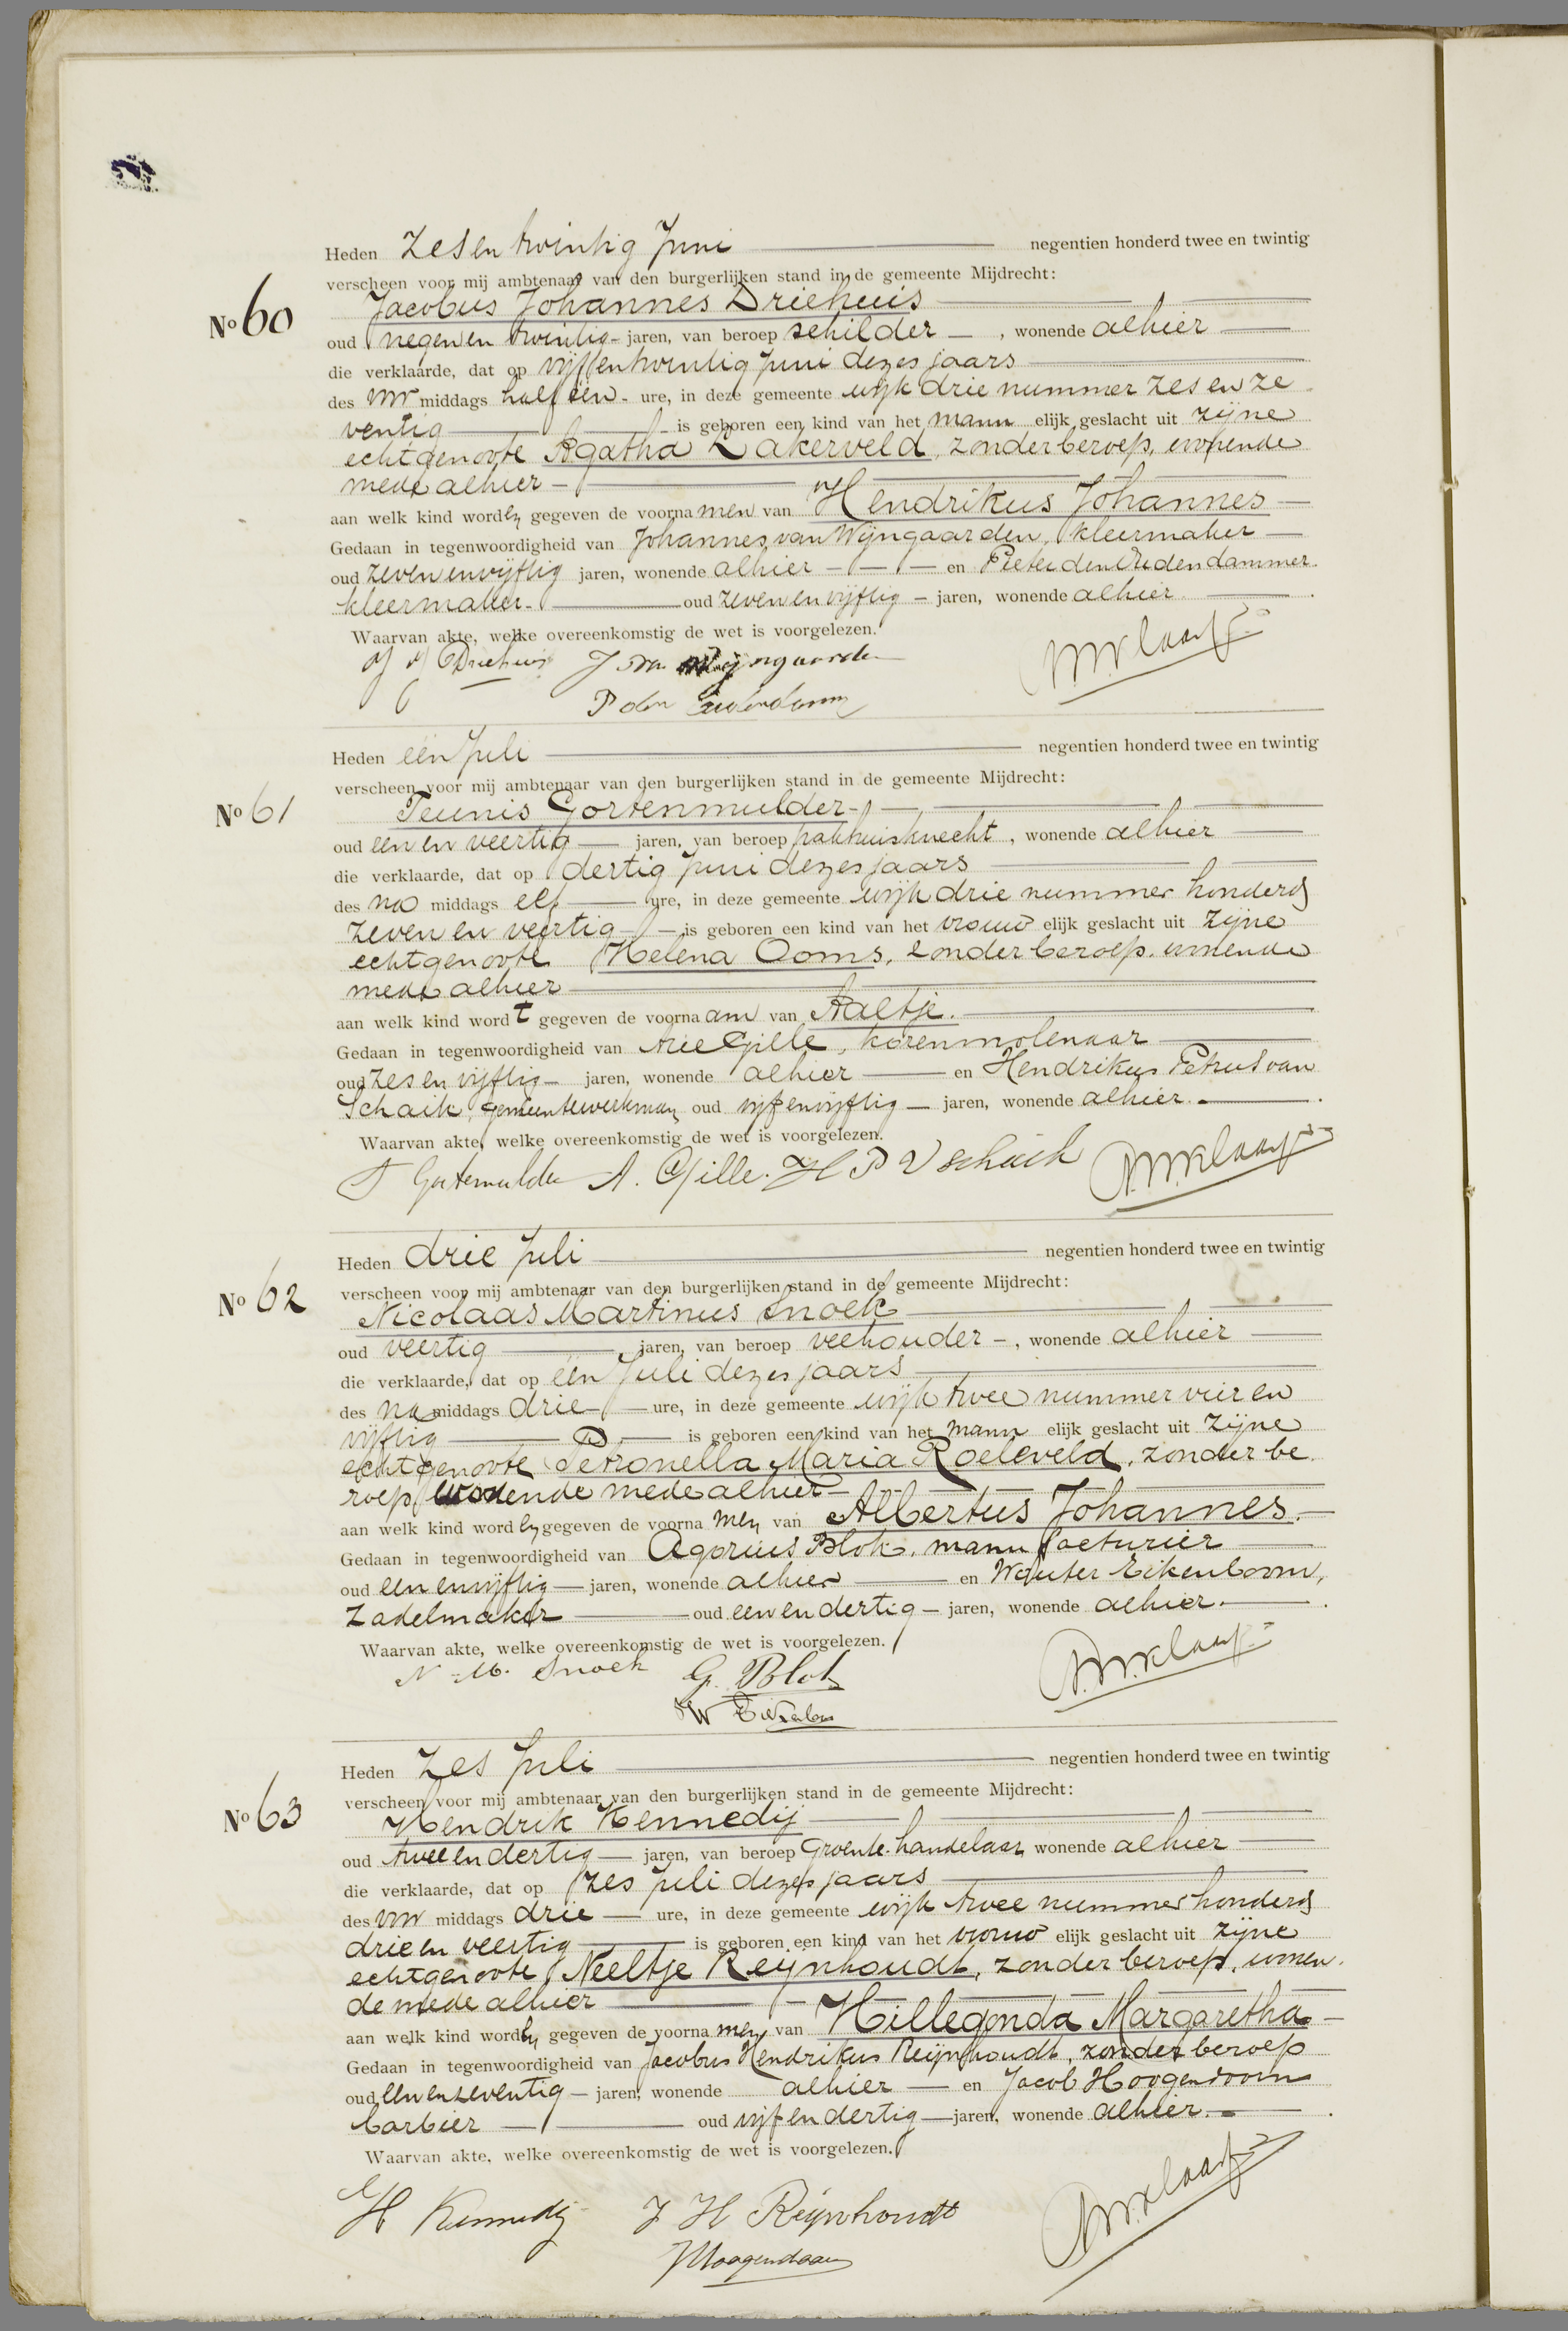 Heden zesentwintig Juni negentien honderd twee en twintig
verscheen voor mij ambtenaar van den burgerlijken stand in de gemeente Mijdrecht:
No 60
Jacobus Johannes Driehuis
oud negen en twintig jaren, van beroep schilder, wonende alhier
die verklaarde, dat op vijf en twintig Juni dezes jaars
des voor middags half één ure, in deze gemeente wijk drie nummer zes en ze
ventig is geboren een kind van het mann elijk geslacht uit zijne
echtgenoote Agatha Lakerveld, zonder beroep, wonende
mede alhier
aan welk kind worden gegeven de voornamen van Hendrikus Johannes
Gedaan in tegenwoordigheid van Johannes van Wijngaarden, kleermaker
oud zeven en vijftig jaren, wonende alhier en Pieter den Oudendammer
kleermaker oud zeven en vijftig jaren, wonende alhier.
Waarvan akte, welke overeenkomstig de wet is voorgelezen.
J J Driehuis J van Wijngaarden
P den Oudendam
Heden één Juli negentien honderd twee en twintig
verscheen voor mij ambtenaar van den burgerlijken stand in de gemeente Mijdrecht:
No 61
Teunis Gortenmulder
oud een en veertig jaren, van beroep pakhuisknecht, wonende alhier
die verklaarde, dat op dertig Juni dezes jaars
des na middags elf ure, in deze gemeente wijk drie nummer honderd
zeven en veertig is geboren een kind van het vrouw elijk geslacht uit zijne
echtgenoote Helena Ooms, zonder beroep, wonende
mede alhier
aan welk kind wordt gegeven de voornaam van Aaltje.
Gedaan in tegenwoordigheid van Arie Gille, korenmolenaar
oud zes en vijftig jaren, wonende alhier en Hendrikus Petrus van
Schaik, gemeentewerkman, oud vijf en vijftig jaren, wonende alhier.
Waarvan akte, welke overeenkomstig de wet is voorgelezen.
T Gortemulder A. Gille. H P V Schaik
Heden drie Juli negentien honderd twee en twintig
verscheen voor mij ambtenaar van den burgerlijken stand in de gemeente Mijdrecht:
No 62
Nicolaas Martinus Snoek
oud veertig jaren, van beroep veehouder, wonende alhier
die verklaarde, dat op één Juli dezes jaars
des na middags drie ure, in deze gemeente wijk twee nummer vier en
vijftig is geboren een kind van het mann elijk geslacht uit zijne
echtgenoote Petronella Maria Roeleveld, zonder be
roep, wonende mede alhier
aan welk kind worden gegeven de voornamen van Albertus Johannes.
Gedaan in tegenwoordigheid van Agorius Blok, manufacturier
oud een en vijftig jaren, wonende alhier en Wouter Eikenboom,
zadelmaker oud een en dertig jaren, wonende alhier.
Waarvan akte, welke overeenkomstig de wet is voorgelezen.
N. M. Snoek G. Blok
Heden zes Juli negentien honderd twee en twintig
verscheen voor mij ambtenaar van den burgerlijken stand in de gemeente Mijdrecht:
No 63
Hendrik Kennedij
oud twee en dertig jaren, van beroep groente-handelaar wonende alhier
die verklaarde, dat op zes Juli dezes jaars
des voor middags drie ure, in deze gemeente wijk twee nummer honderd
drie en veertig is geboren een kind van het vrouw elijk geslacht uit zijne
echtgenoote Neeltje Reijnhoudt, zonder beroep, wonen
de mede alhier
aan welk kind worden gegeven de voornamen van Hillegonda Margaretha
Gedaan in tegenwoordigheid van Jacobus Hendrikus Reijnhoudt, zonder beroep
oud een en zeventig jaren, wonende alhier en Jacob Hoogendoorn
barbier oud vijf en dertig jaren, wonende alhier.
Waarvan akte, welke overeenkomstig de wet is voorgelezen.
H Kennedij J H Reijnhoudt
J Hoogendoorn